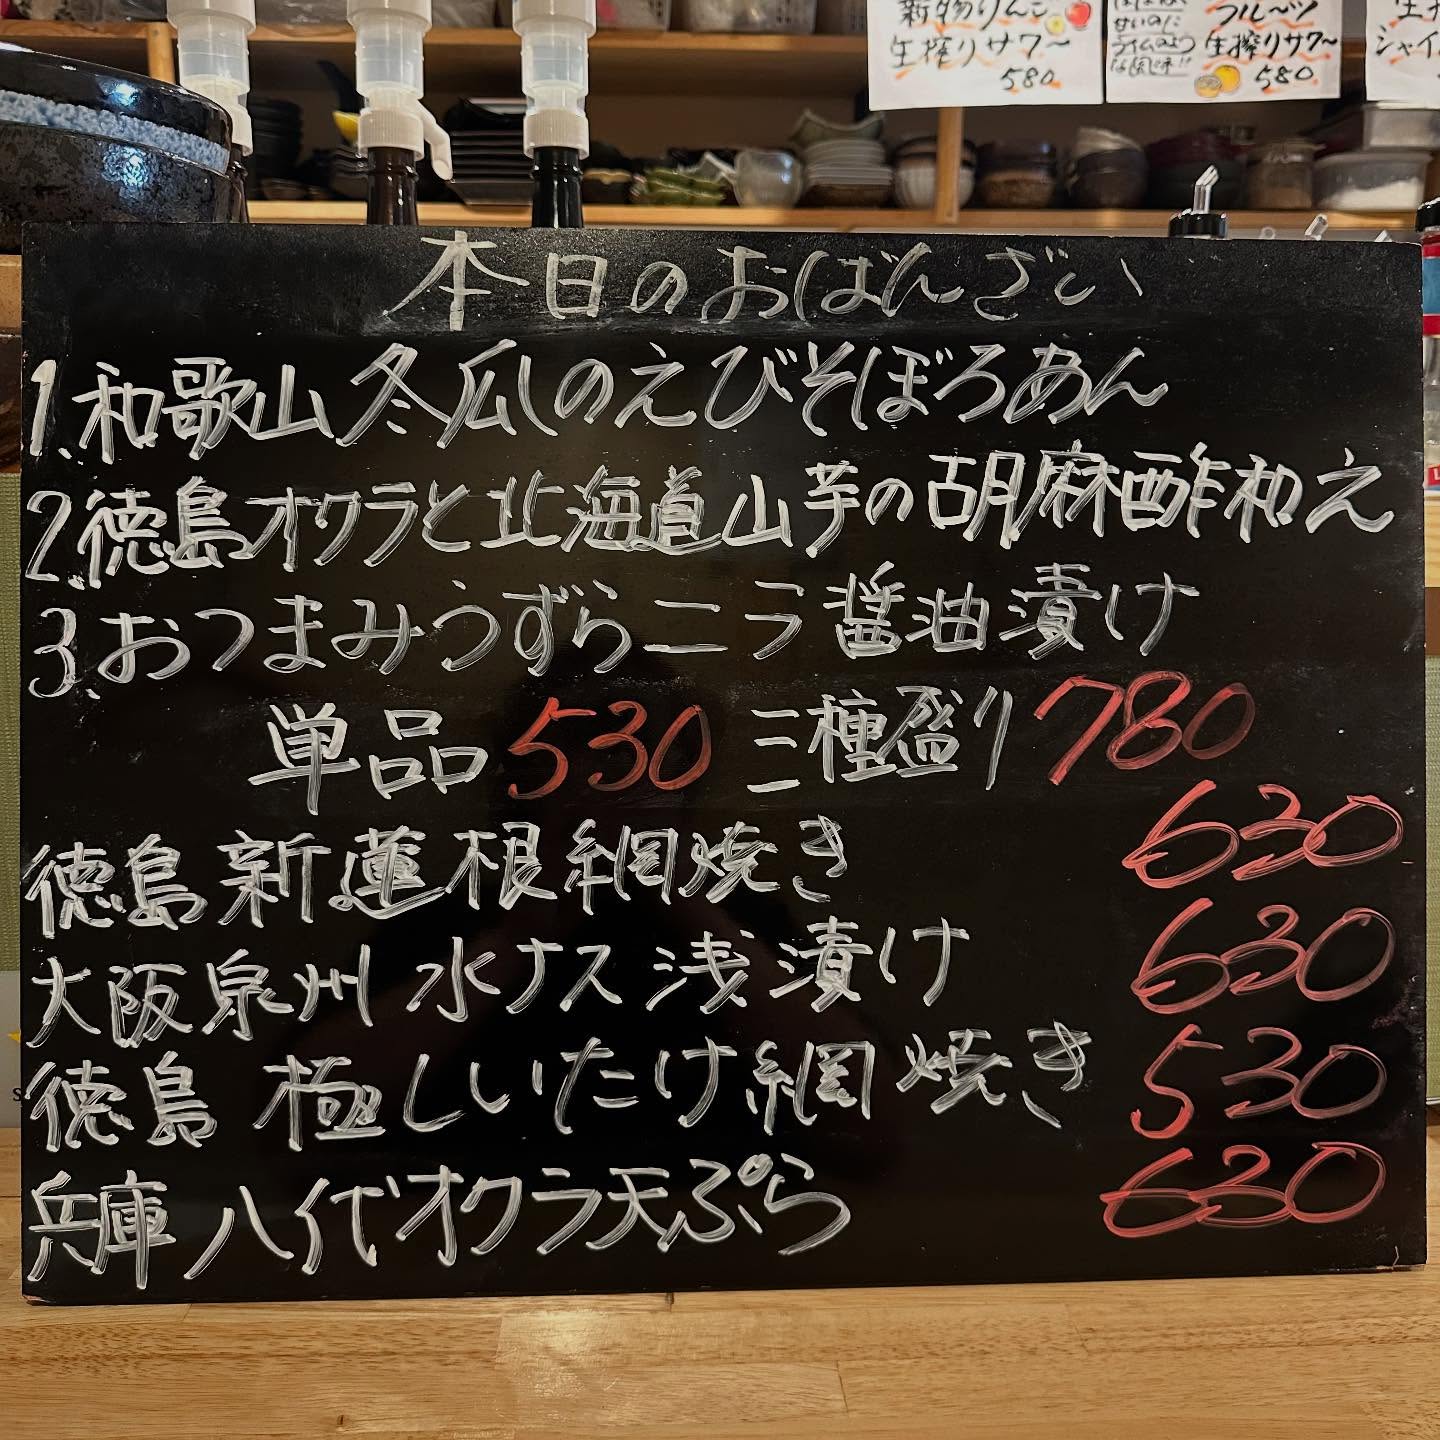 新物りんご
生搾りサワー
580
フルーツ
生搾りサワー
580
本日のおばんざい
1.和歌山冬瓜しのえびそぼろあん
2.徳島オクラと北海道山芋の胡麻酢和え
3.おつまみうずらニラ醤油漬け
単品530 三種盛り780
徳島新蓮根網焼き 630
大阪泉州水ナス浅漬け 630
徳島 極しいたけ網焼き 530
兵庫八代オクラ天ぷら 630